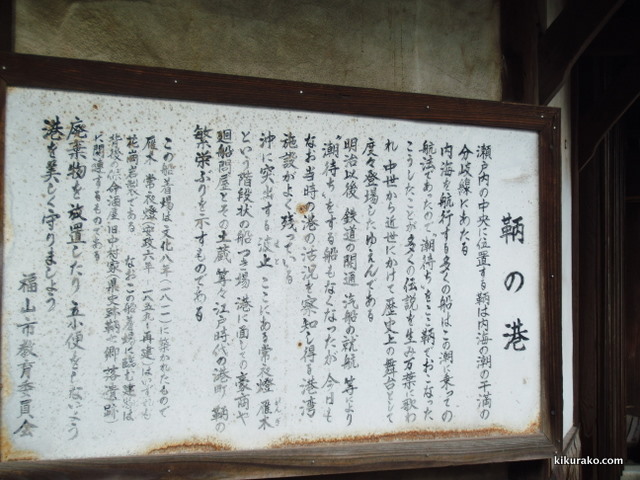 鞆の港
瀬戸内の中央に位置する鞆は内海の潮の干満の
分岐線にあたる
内海を航行する多くの船はこの潮に乗っての
航法であったので潮待ちをここ鞆でおこなった
こうしたことが多くの伝説を生み万葉に歌わ
れ 中世から近世にかけて歴史上の舞台として
度々登場したゆえんである
明治以後 鉄道の開通 汽船の就航 等により
潮待ちをする船もなくなったが 今日も
なお当時の港の活況を察知し得る港湾
施設がよく残っている
沖に突出する波止 ここにある常夜燈 雁木
という階段状の船つき場 港に面しての豪商や
廻船問屋とその土蔵 等々江戸時代の港町 鞆の
繁栄ぶりを示すものである
この船着場は文化八年(一八一一)に築かれたもので
雁木 常夜燈(安政六年 一八五九 再建)はいずれも
花崗岩製である なおこの船着場に臨む建物は
背後の保命酒屋(旧中村家 県史跡鞆七卿落遺跡)
に関連するものである
廃棄物を放置したり 立小便をしないよう
港を美しく守りましょう
福山市教育委員会
kikurako.com